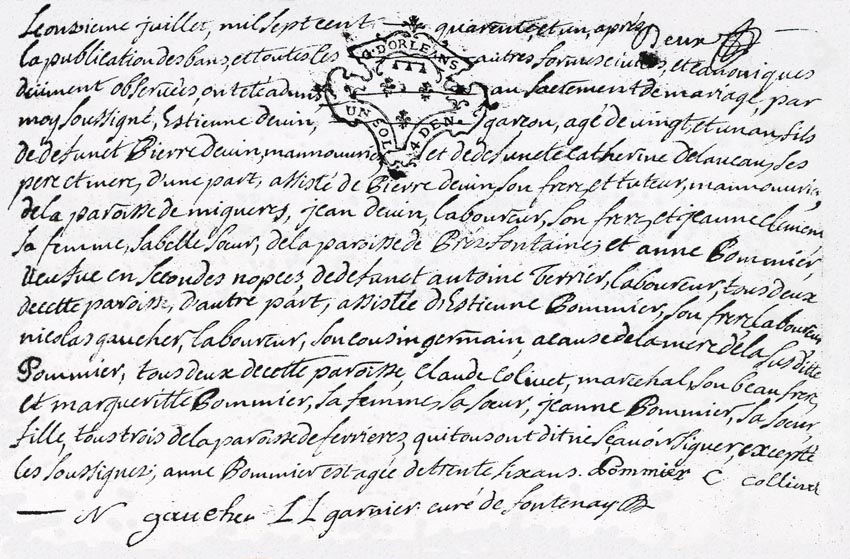 Le onzieme juillet, mil sept cent — quarante et un, apres deux
la publication des bans, et toutes les autres formes civiles, et canoniques
deüiment observées ont eté admis au sacrement de mariage, par
moy soussigné, Estienne devin, garçon, agé de vingt, et un an fils
de defunct Pierre devin, mannouvrie et de defuncte Catherine delaveau, ses
pere et mere, d'une part, assisté de Pierre devin son frere et tuteur, mannouvrie,
de la paroisse de migneres, jean devin, laboureur, son frere, et jeanne clement
sa femme, sa belle soeur, de la paroisse de Préfontaine, et anne Pommier,
veufve en secondes nopces, de defunct antoine Terrier, laboureur, tous deux
de cette paroisse, d'autre part, assistée d'Estienne Pommier, son frere, laboureur
nicolas gaucher, laboureur, son cousin germain, a cause de la mere de la susditte
Pommier, tous deux de cette paroisse, Claude Colivet, marechal, son beau frere,
et margueritte Pommier, sa femme, sa soeur, jeanne Pommier, sa soeur,
fille, tous trois de la paroisse de ferrieres, qui tous ont dit ne sçavoir signer, excepté
les soussignez; anne Pommier est agée de trente six ans. Pommier C
— N gaucher L L garnier curé de fontenay
G. D'ORLEANS
UN SOL 4 DEN